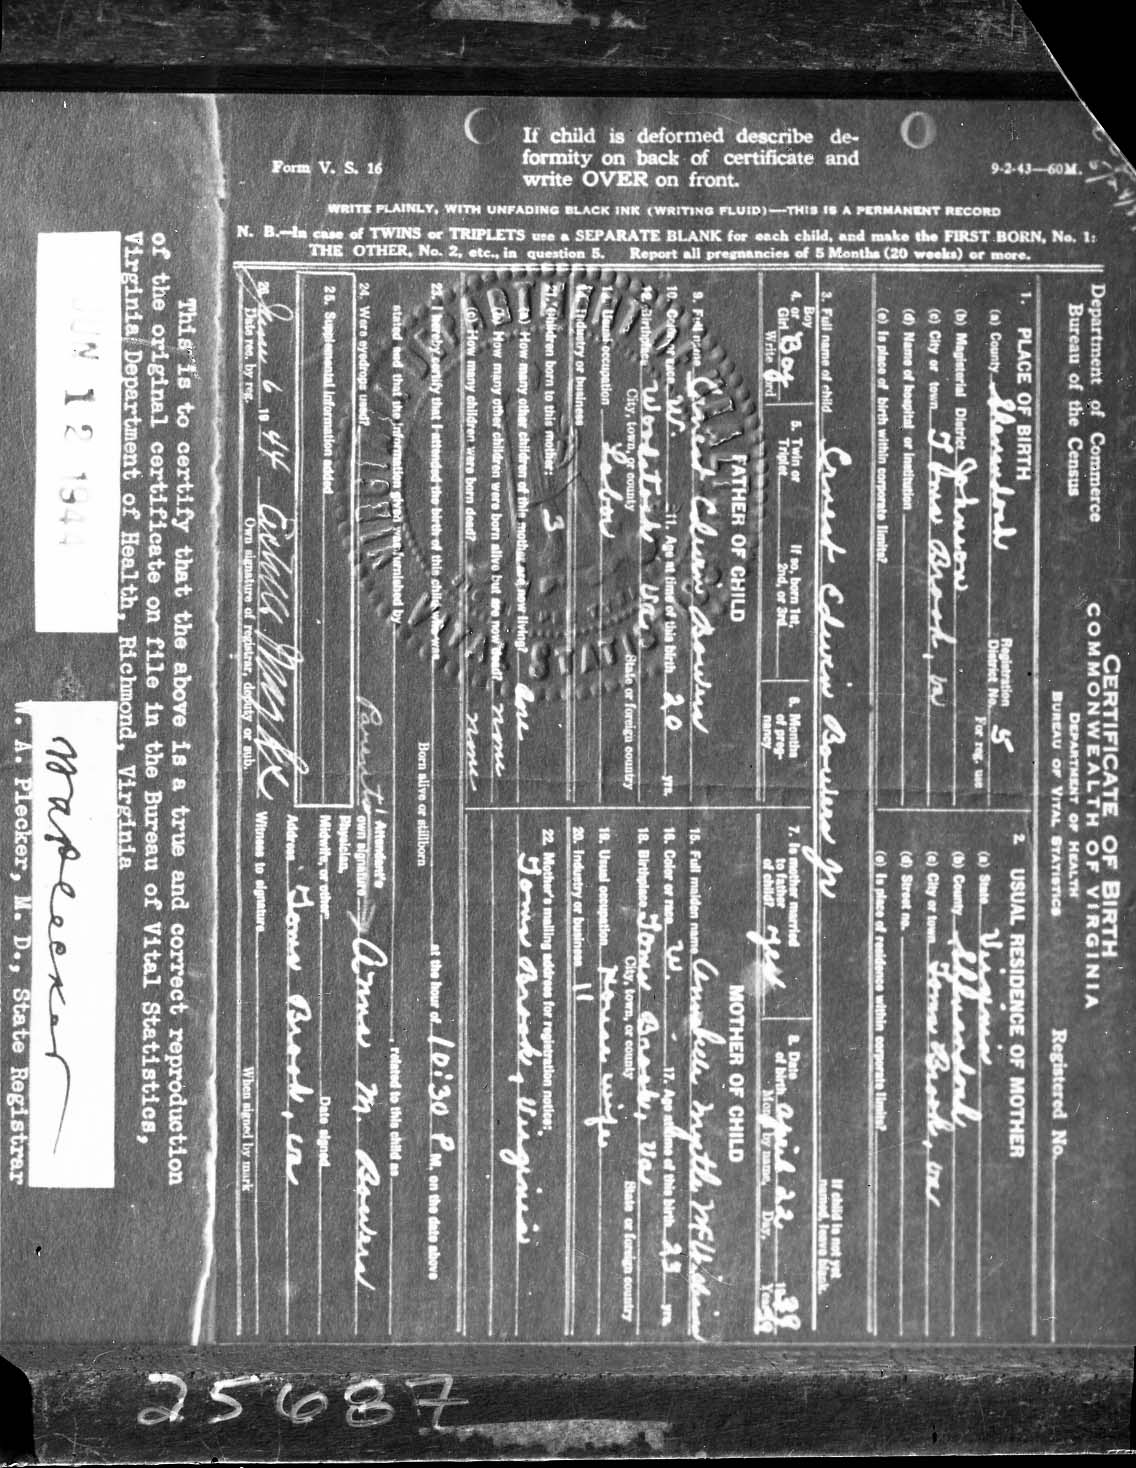 Department of Commerce
Bureau of the Census
CERTIFICATE OF BIRTH
COMMONWEALTH OF VIRGINIA
DEPARTMENT OF HEALTH
BUREAU OF VITAL STATISTICS
Registered No.
9-2-43—60M.
If child is deformed describe de-
formity on back of certificate and
write OVER on front.
Form V. S. 16
WRITE PLAINLY, WITH UNFADING BLACK INK (WRITING FLUID)—THIS IS A PERMANENT RECORD
N. B.—In case of TWINS or TRIPLETS use a SEPARATE BLANK for each child, and make the FIRST BORN, No. 1:
THE OTHER, No. 2, etc., in question 5. Report all pregnancies of 5 Months (20 weeks) or more.
1. PLACE OF BIRTH
Registration
District No. 5
For reg. use
(a) County
(b) Magisterial District Johnson
(c) City or town Toms Brook, Va
(d) Name of hospital or institution
(e) Is place of birth within corporate limits?
2. USUAL RESIDENCE OF MOTHER
(a) State Virginia
(b) County
(c) City or town Toms Brook, Va
(d) Street no.
(e) Is place of residence within corporate limits?
3. Full name of child Ernest Edwin Bowers Jr
If child is not yet
named, leave blank.
4. Boy
or
Girl Boy
Write word
5. Twin or
Triplet
If so, born 1st,
2nd, or 3rd
6. Months
of preg-
nancy
7. Is mother married
to father
of child? yes
8. Date
of birth April 22 1939
Month by name, Day, Year
FATHER OF CHILD
9. Full name Ernest Edwin Bowers
10. Color or race W. 11. Age at time of this birth 20 yrs.
12. Birthplace Woodstock Va
City, town, or county State or foreign country
13. Usual occupation Labor
14. Industry or business
MOTHER OF CHILD
15. Full maiden name
16. Color or race W. 17. Age at time of this birth 23 yrs.
18. Birthplace Toms Brook, Va
City, town, or county State or foreign country
19. Usual occupation House wife
20. Industry or business "
21. Children born to this mother: 3
(a) How many other children of this mother are now living? One
(b) How many other children were born alive but are now dead? none
(c) How many children were born dead? none
22. Mother's mailing address for registration notice:
Toms Brook, Virginia
23. I hereby certify that I attended the birth of this child who was
Born alive or stillborn
at the hour of 10:30 P M. on the date above
stated and that the information given was furnished by
related to this child as
24. Were eyedrops used?
Parent
Attendant's
own signature Anna M. Bowers
Physician,
Midwife, or other
Date signed
25. Supplemental information added
Address Toms Brook, Va
26. June 6 1944
Date rec. by reg.
Own signature of registrar, deputy or sub.
Witness to signature
When signed by mark
This is to certify that the above is a true and correct reproduction
of the original certificate on file in the Bureau of Vital Statistics,
Virginia Department of Health, Richmond, Virginia
JUN 12 1944
W A Plecker
W. A. Plecker, M. D., State Registrar
25687